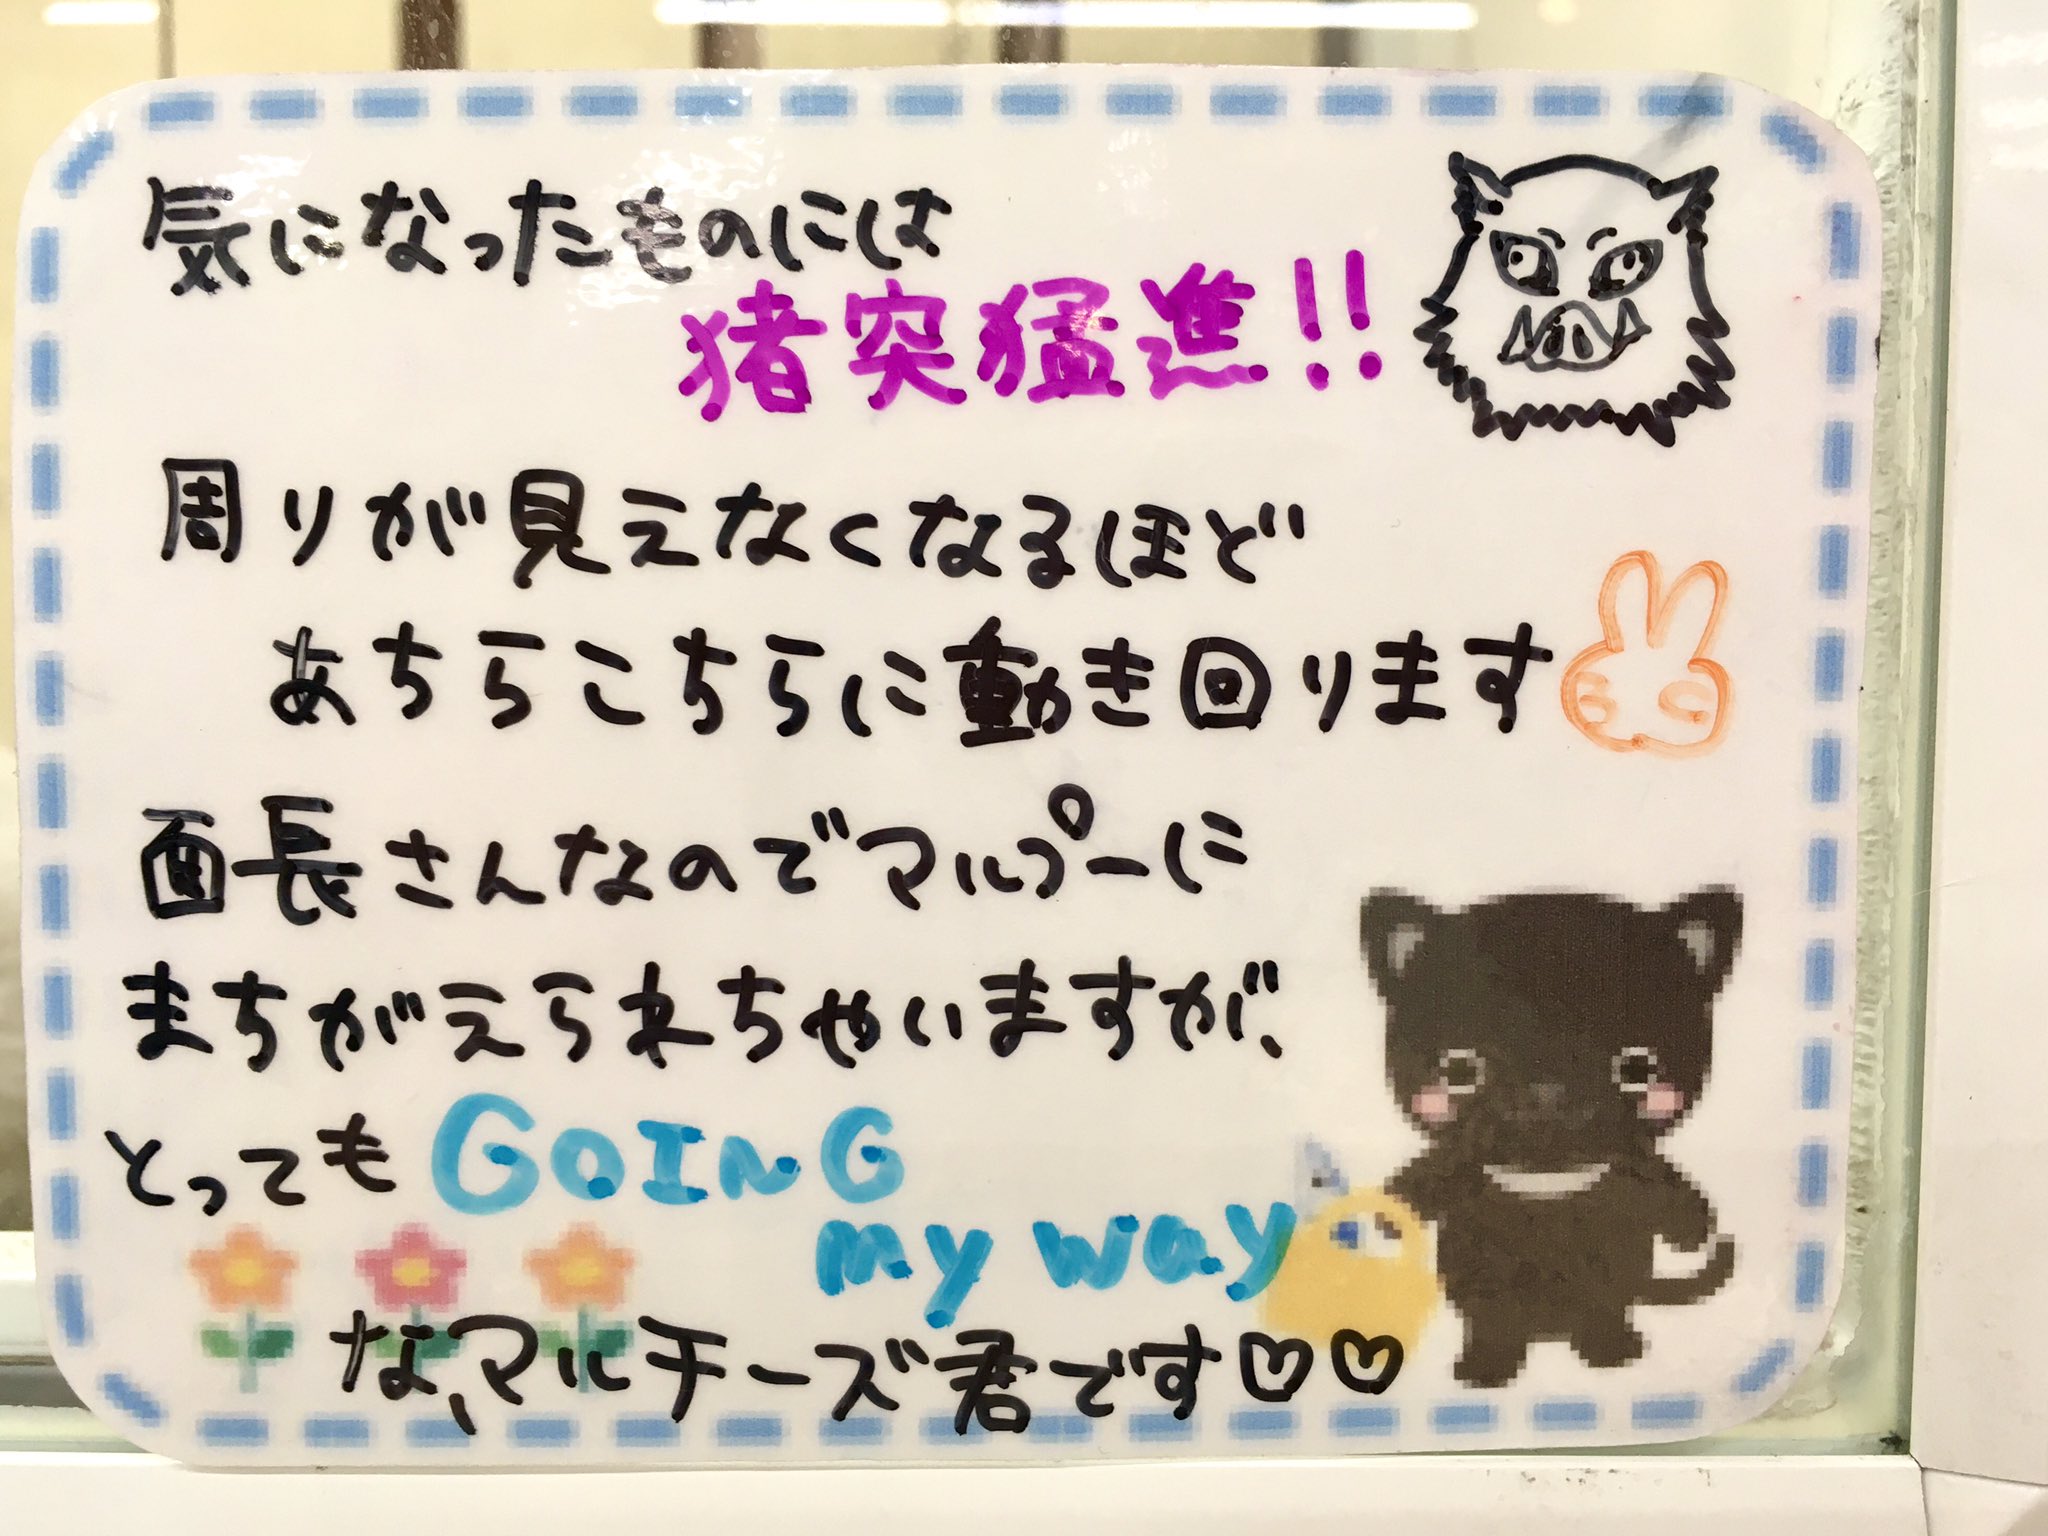 気になったものには
猪突猛進!!
周りが見えなくなるほど
あちらこちらに動き回ります
面長さんなのでマルプーに
まちがえられちゃいますが、
とってもGOING
my way
な、マルチーズ君です♡♡